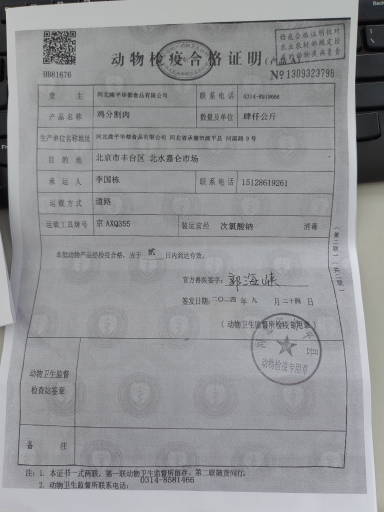 动物检疫合格证明(产品B)
HB81676
№1309323798
货 主 河北滦平华都食品有限公司 联系电话 0314-8581666
产品名称 鸡分割肉 数量及单位 肆仟公斤
生产单位名称地址 河北滦平华都食品有限公司 河北省承德市滦平县
目的地 北京市丰台区 北水嘉仑市场
承运人 李国栋 联系电话 15128619261
运载方式 道路
运载工具牌号 京AXQ355 装运前经 次氯酸钠 消毒
本批动物产品经检疫合格,应于 贰 日内到达有效。
官方兽医签字:郭海峡
签发日期:二〇二四年九月二十四日
(动物卫生监督所检疫专用章)
动物检疫专用章
动物卫生监督
检查站签章
备 注
(第二联)(共二联)
注:1.本证书一式两联,第一联动物卫生监督所留存,第二联随货同行。
2.动物卫生监督所联系电话:0314-8581466